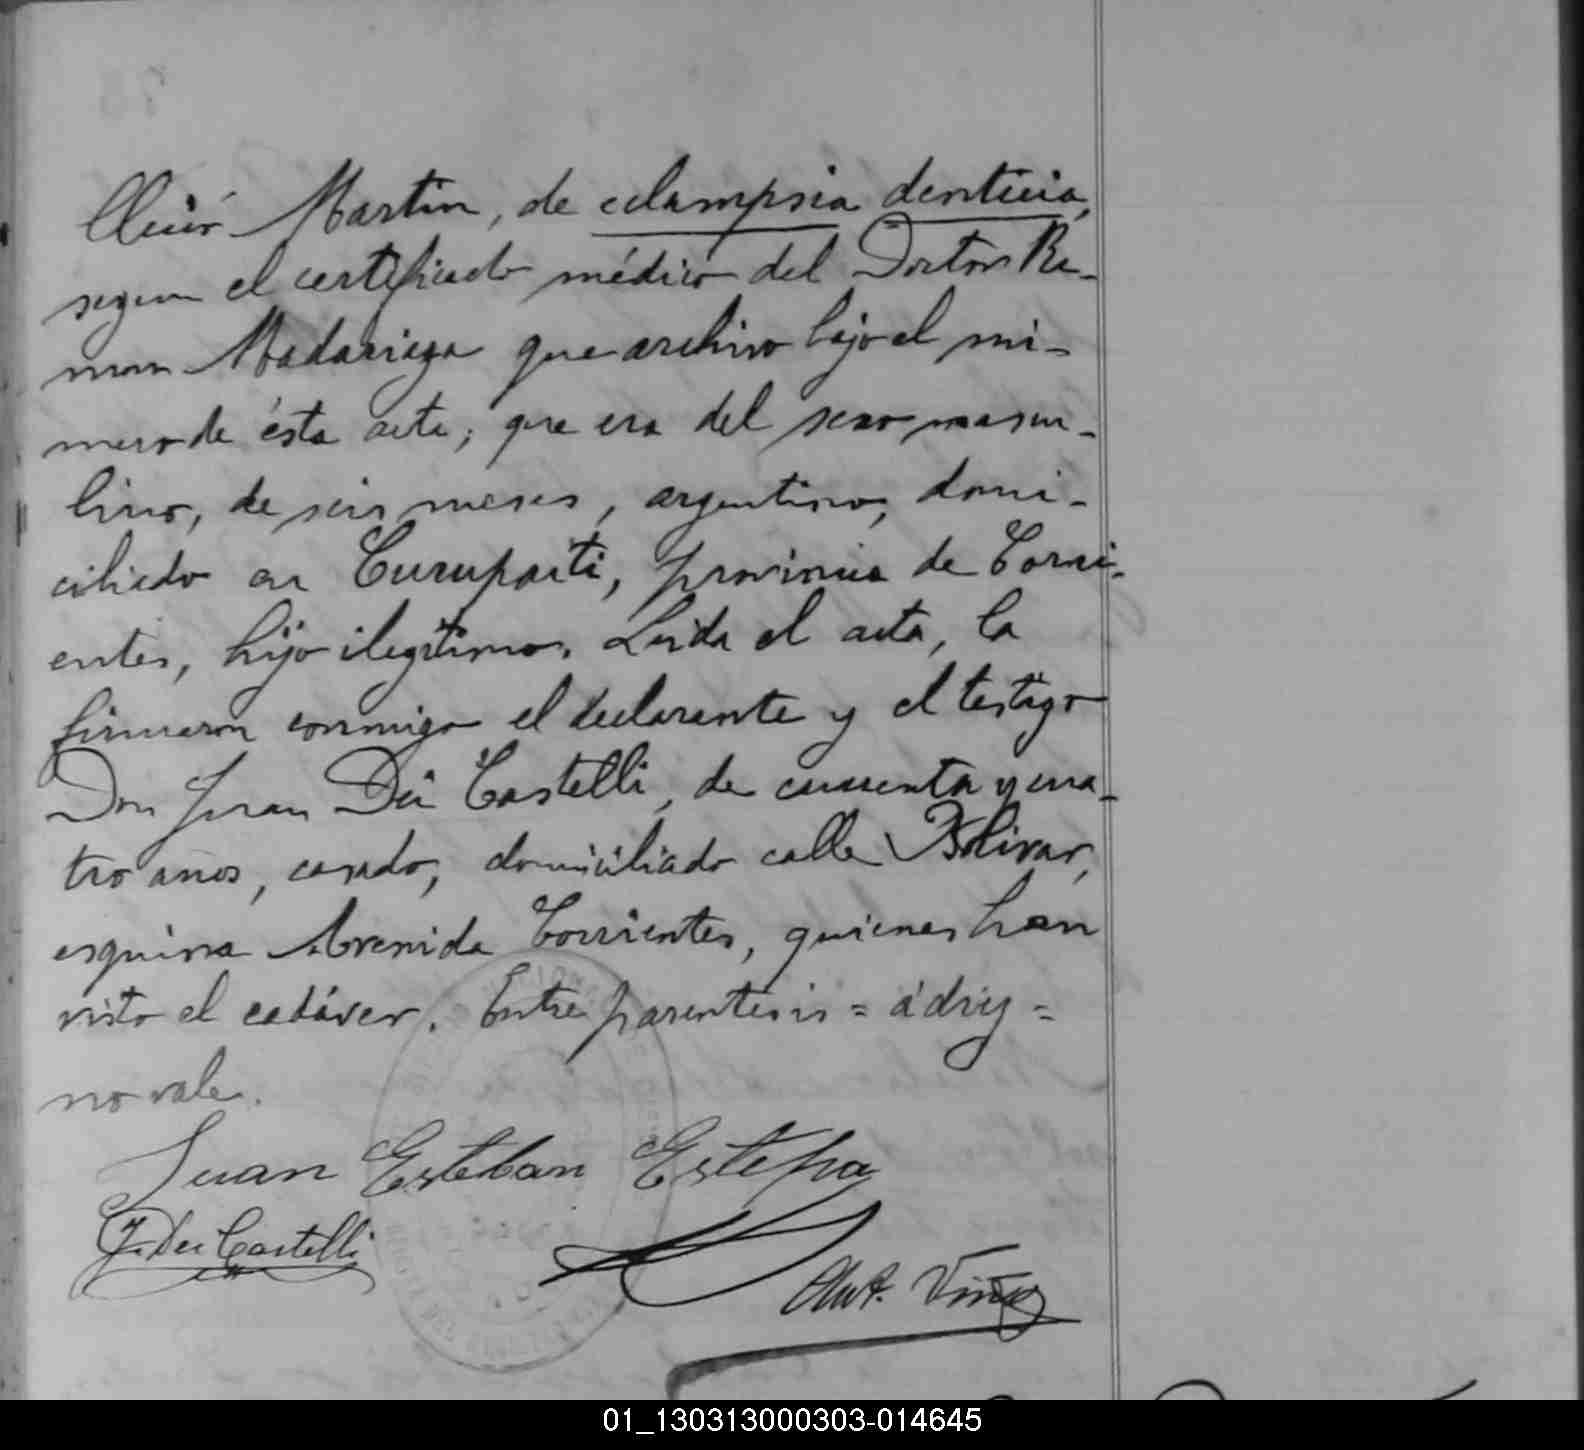 lleció Martin, de eclampsia denticia,
segun el certificado médico del Doctor Ra-
mon Madariaga que archivo bajo el nú-
mero de ésta acta; que era del sexo mascu-
lino, de seis meses, argentino, domi-
ciliado en Curupaití, provincia de Corri-
entes, hijo ilegítimo. Leida el acta, la
firmaron conmigo el declarante y el testigo
Don Juan Dei Castelli, de cuarenta y cua-
tro años, casado, domiciliado calle Bolivar,
esquina Avenida Corrientes, quienes han
visto el cadáver. Entre parentesis = á diez =
no vale.
Juan Esteban Estepa
J. Dei Castelli
Ant.
01_130313000303-014645